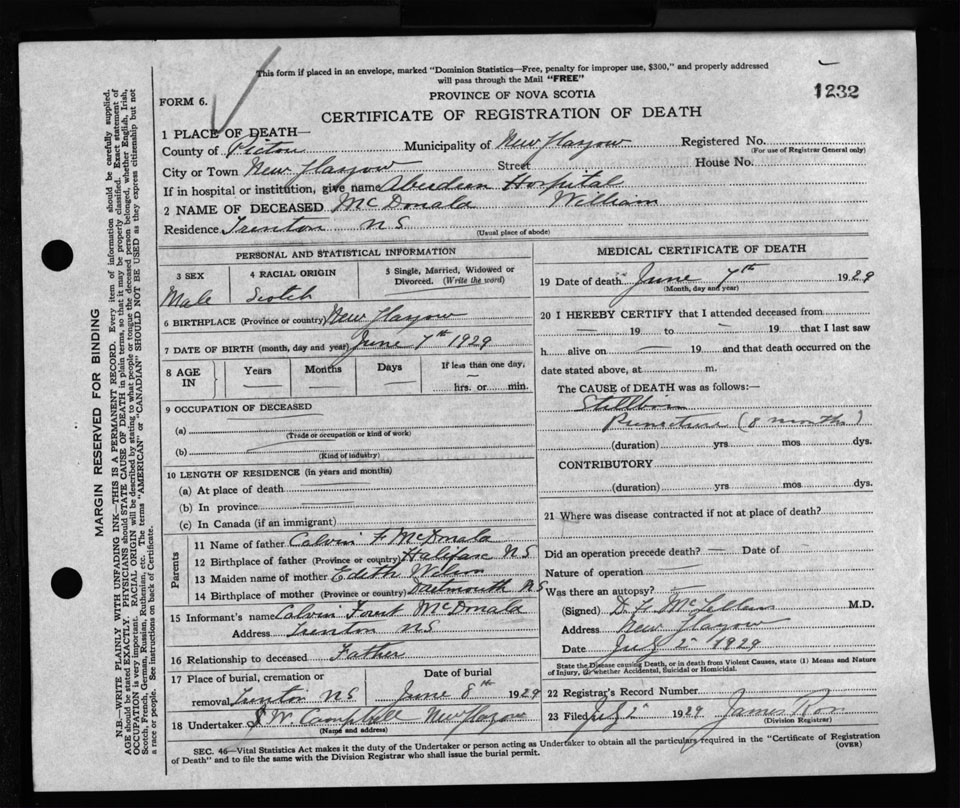 This form if placed in an envelope, marked "Dominion Statistics—Free, penalty for improper use, $300," and properly addressed
will pass through the Mail "FREE"
1232
PROVINCE OF NOVA SCOTIA
FORM 6.
CERTIFICATE OF REGISTRATION OF DEATH
1 PLACE OF DEATH—
County of Pictou Municipality of New Glasgow Registered No.
(For use of Registrar General only)
City or Town New Glasgow Street House No.
If in hospital or institution, give name Aberdeen Hospital
2 NAME OF DECEASED McDonald William
Residence Trenton NS
(Usual place of abode)
PERSONAL AND STATISTICAL INFORMATION
3 SEX 4 RACIAL ORIGIN 5 Single, Married, Widowed or
Divorced. (Write the word)
Male Scotch
6 BIRTHPLACE (Province or country) New Glasgow
7 DATE OF BIRTH (month, day and year) June 7th 1929
8 AGE IN Years Months Days If less than one day,
hrs. or min.
9 OCCUPATION OF DECEASED
(a)
(Trade or occupation or kind of work)
(b)
(Kind of industry)
10 LENGTH OF RESIDENCE (in years and months)
(a) At place of death
(b) In province
(c) In Canada (if an immigrant)
Parents
11 Name of father Calvin F McDonald
12 Birthplace of father (Province or country) Halifax NS
13 Maiden name of mother Edith Wilson
14 Birthplace of mother (Province or country) Dartmouth NS
15 Informant's name Calvin Forest McDonald
Address Trenton NS
16 Relationship to deceased Father
17 Place of burial, cremation or Date of burial
removal Trenton NS June 8th 1929
18 Undertaker J W Campbell New Glasgow
(Name and address)
MEDICAL CERTIFICATE OF DEATH
19 Date of death June 7th 1929
(Month, day and year)
20 I HEREBY CERTIFY that I attended deceased from
— 19 to — 19 that I last saw
h alive on — 19 and that death occurred on the
date stated above, at m.
The CAUSE of DEATH was as follows:—
Stillborn
Premature (8 months)
(duration) yrs mos dys.
CONTRIBUTORY
(duration) yrs mos dys.
21 Where was disease contracted if not at place of death?
Did an operation precede death? — Date of
Nature of operation
Was there an autopsy?
(Signed) M.D.
Address New Glasgow
Date July 2 1929
State the Disease causing Death, or in death from Violent Causes, state (1) Means and Nature
of Injury, (2) whether Accidental, Suicidal or Homicidal.
22 Registrar's Record Number
23 Filed July 2 1929 James Ross
(Division Registrar)
SEC. 46—Vital Statistics Act makes it the duty of the Undertaker or person acting as Undertaker to obtain all the particulars required in the "Certificate of Registration
of Death" and to file the same with the Division Registrar who shall issue the burial permit. (OVER)
MARGIN RESERVED FOR BINDING
N.B.—WRITE PLAINLY WITH UNFADING INK—THIS IS A PERMANENT RECORD. Every item of information should be carefully supplied.
AGE should be stated EXACTLY. PHYSICIANS should STATE CAUSE OF DEATH in plain terms, so that it may be properly classified. Exact statement of
OCCUPATION is very important. RACIAL ORIGIN will be described by stating to what people or tongue the deceased person belonged, whether English, Irish,
Scotch, French, German, Russian, Ruthenian, etc. The terms "AMERICAN" or "CANADIAN" SHOULD NOT BE USED as they express citizenship but not
a race or people. See instructions on back of Certificate.